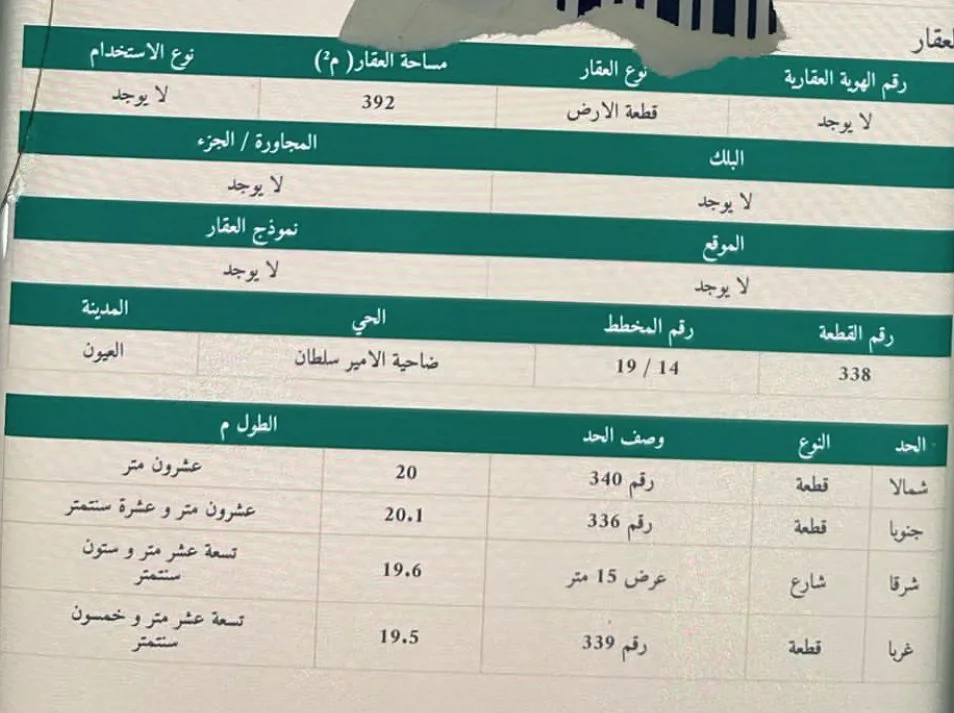 العقار
رقم الهوية العقارية نوع العقار مساحة العقار( م²) نوع الاستخدام
لا يوجد قطعة الارض 392 لا يوجد
البلك المجاورة / الجزء
لا يوجد لا يوجد
الموقع نموذج العقار
لا يوجد لا يوجد
رقم القطعة رقم المخطط الحي المدينة
338 19 / 14 ضاحية الامير سلطان العيون
الحد النوع وصف الحد الطول م
شمالا قطعة رقم 340 20 عشرون متر
جنوبا قطعة رقم 336 20.1 عشرون متر و عشرة سنتمتر
شرقا شارع عرض 15 متر 19.6 تسعة عشر متر و ستون
سنتمتر
غربا قطعة رقم 339 19.5 تسعة عشر متر و خمسون
سنتمتر